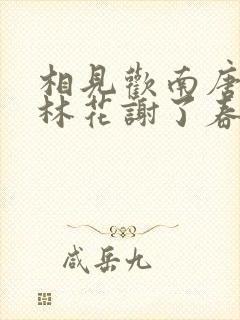 相見歡南唐
林花謝了春
咸岳九